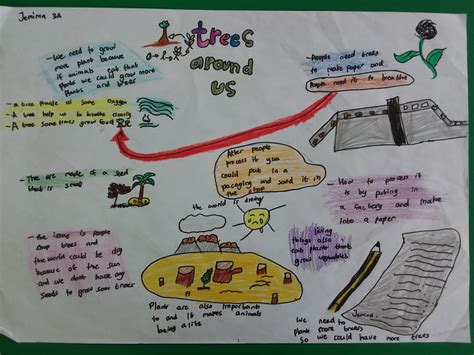 Jemima 3A
trees
around
us
-We need to grow
more plants because
if animals eat that
plants we could grow more
plants and trees
-People need trees
to make paper and
People need it to breathe
-A tree provide us some oxygen
-A tree help us to breathe clearly
-A tree some times grow food
After people
process it you
could put in a
packaging and send it in
the shop
-The are made of a seed
that is small
- How to process it
is by puting in
a factory and make
into a paper
the world is dying
- the issue is people
chop trees and
the world could be dry
because of the sun
and we dont have any
seeds to grow some trees
living
things also
eat plants that
grow vegetables
Plants are also importants
to and it makes animals
being alife
We need to
plants more trees
so we could have more trees